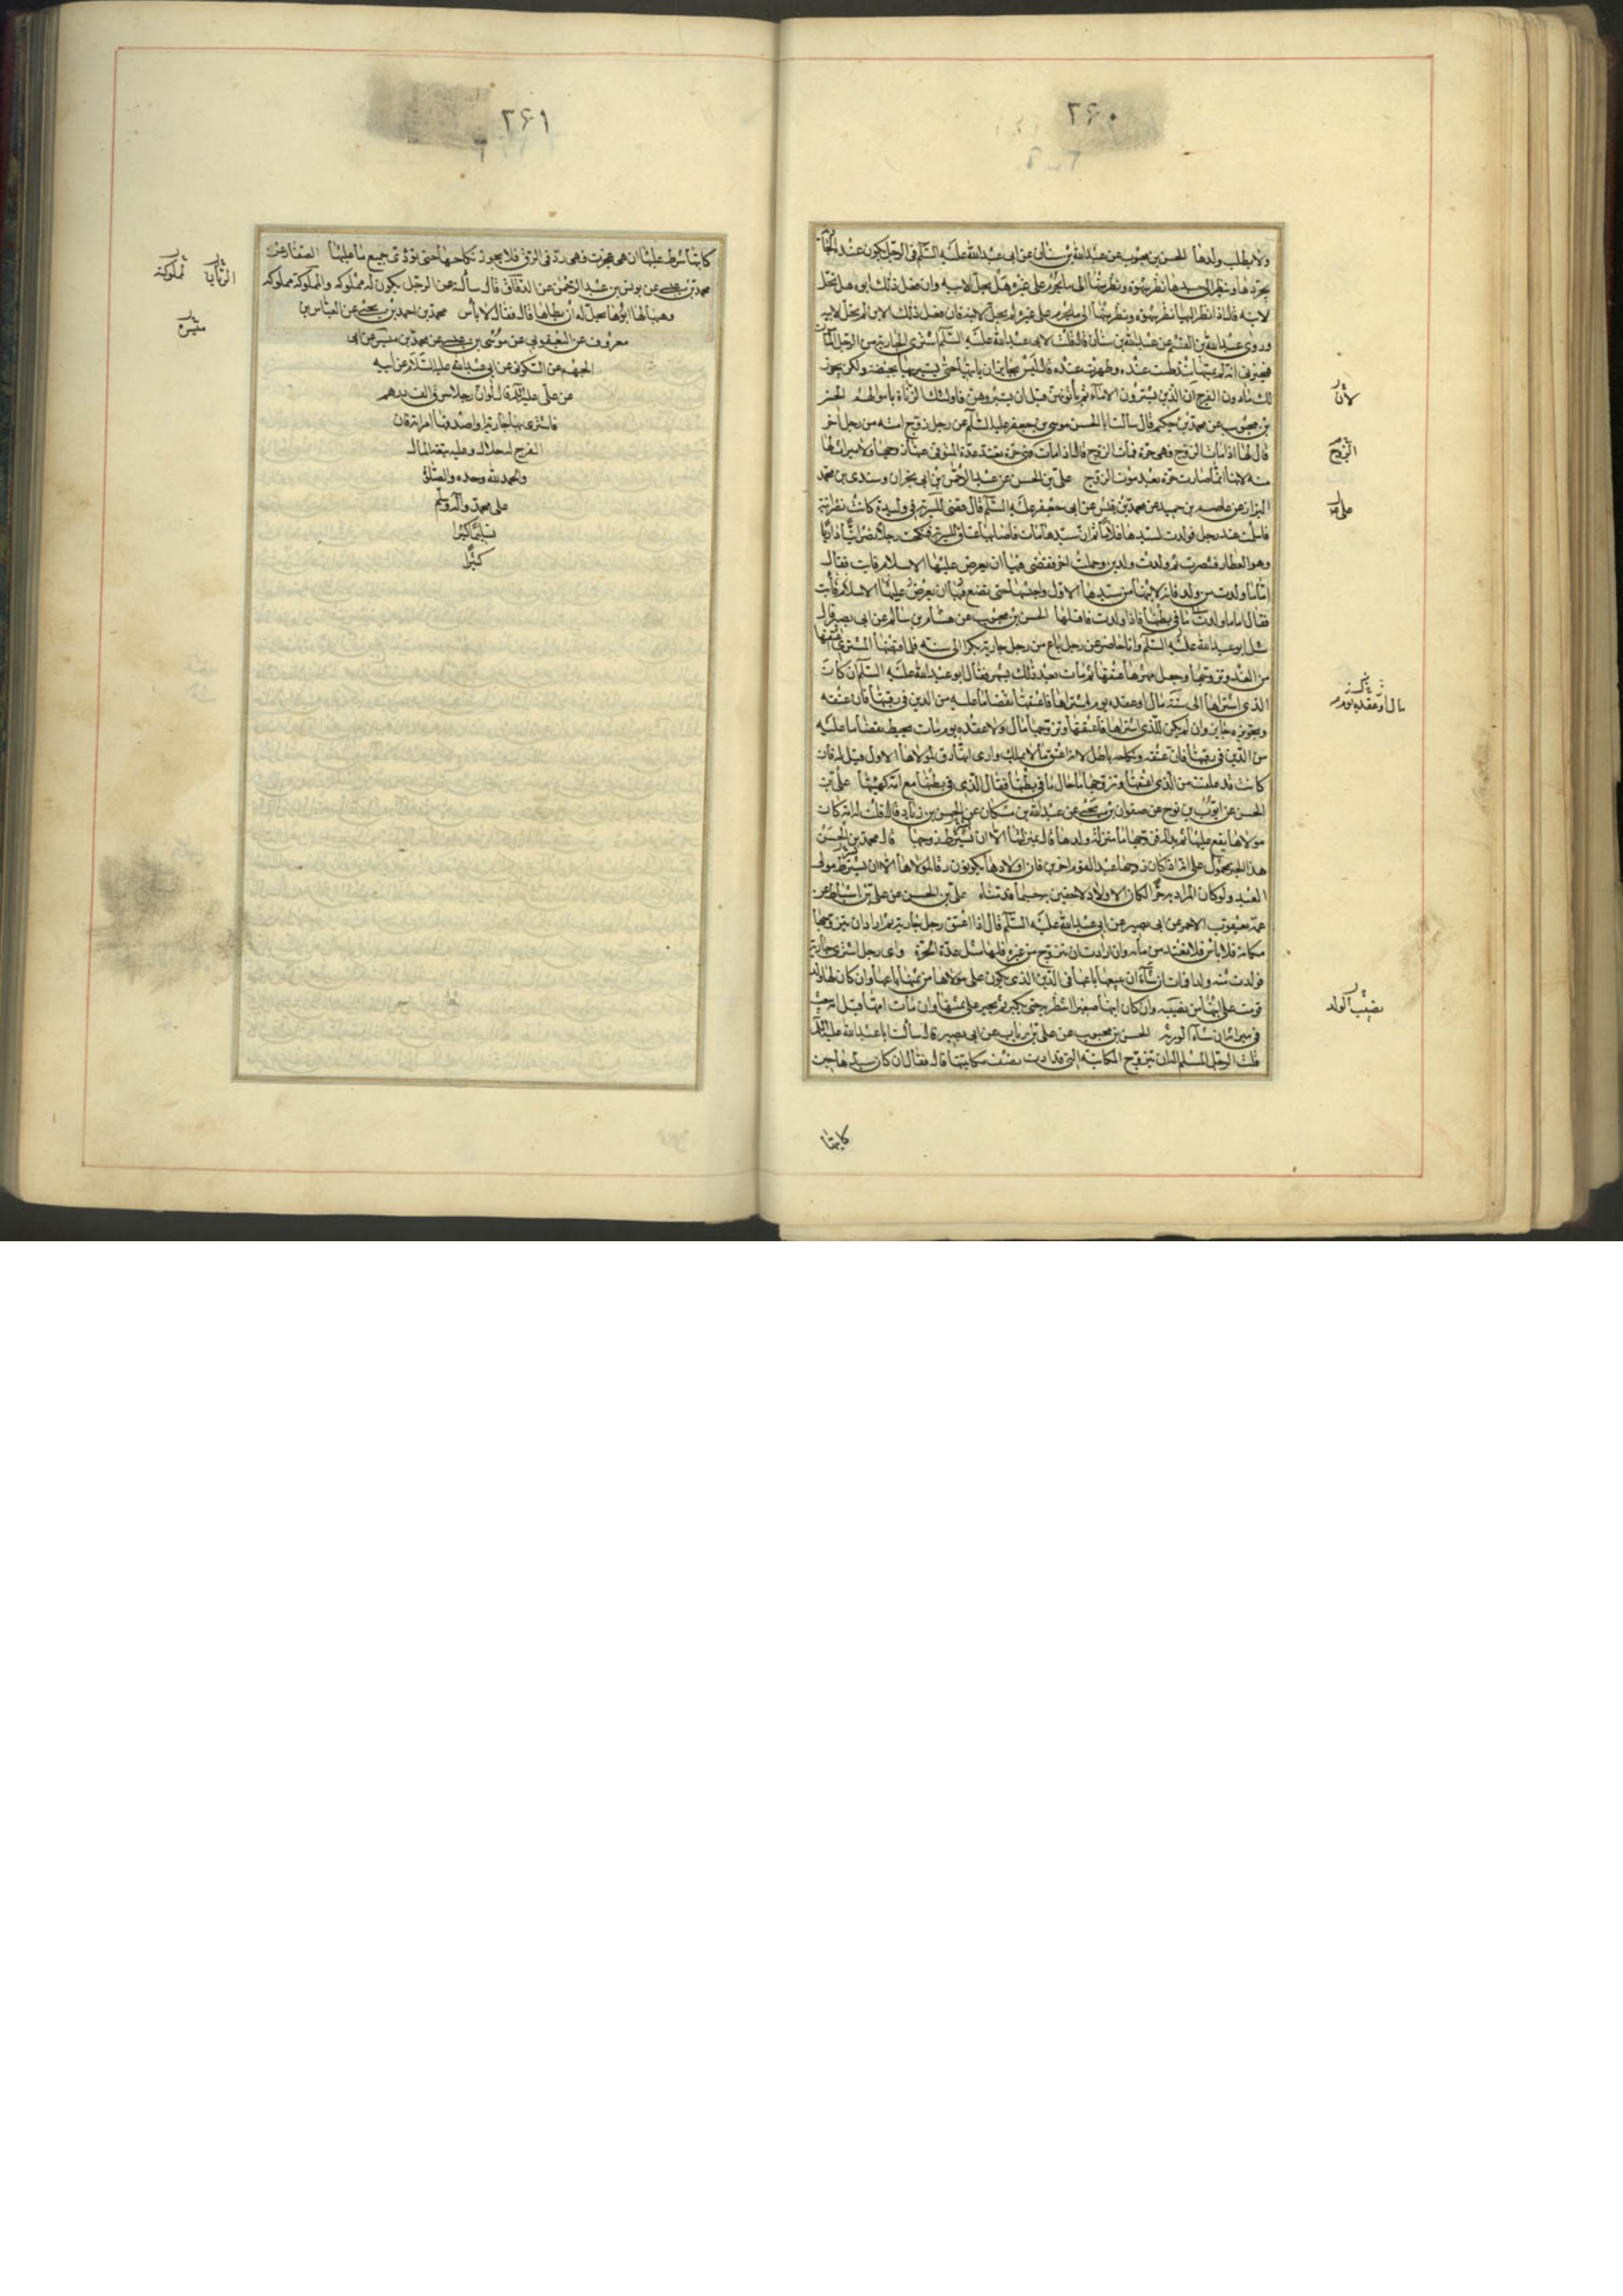 ٣۶٠
ولا يطلب ولدها الحسن بن محبوب عن عبد الله بن سنان عن ابى عبد الله عليه السلم فى الرجل يكون عنده الجارية
يجردها وينظر الى جسدها نظر شهوة ونظر منها الى ما يحرم على غيره هل تحل لابيه وان فعل ذلك ابوه هل تحل
لابنه قال اذا نظر اليها نظر شهوة ونظر منها الى ما يحرم على غيره لم تحل لابنه فان فعل ذلك الابن لم تحل لابيه
وروى عبد الله بن القسم عن عبد الله بن سنان قال قلت لابى عبد الله عليه السلم اشترى الجارية من الرجل المأمون
فيخبرنى انه لم يمسها منذ طمثت عنده وطهرت عنده قال ليس بجايز ان يأتيها حتى يستبرئها بحيضة ولكن يجوز
لك ما دون الفرج ان الذين يشترون الاماء ثم يأتونهن قبل ان يستبروهن فاولئك الزناة باموالهم الحسن
بن محبوب عن محمد بن حكيم قال سألت ابا الحسن موسى بن جعفر عليه السلم عن رجل زوج امته من رجل اخر
قال لها اذا مات الزوج فهى حرة فمات الزوج قال اذا مات فهى حرة تعتد عدة المتوفى عنها زوجها ولا ميراث لها
منه لانها انما صارت حرة بعد موت الزوج على بن الحسن عن عبد الرحمن بن ابى نجران وسندى بن محمد
البزاز عن عاصم بن حميد عن محمد بن قيس عن ابى جعفر عليه السلم قال قضى على فى وليدة كانت نصرانية
فاسلمت عند رجل فولدت لسيدها غلاما ثم ان سيدها مات فاصابها عتاق السرية فنكحت رجلا نصرانيا داريا
وهو العطار فتنصرت ثم ولدت ولدين وحملت اخر فقضى فيها ان يعرض عليها الاسلام فابت فقال
اما ما ولدت من ولد فانه لابنها من سيدها الاول واحبسها حتى تضع ما
فقال اما ما ولدت ما فى بطنها فاذا ولدت فاقتلها الحسن بن محبوب عن هشام بن سالم عن ابى بصير قال
سئل ابو عبد الله عليه السلم وانا حاضر عن رجل باع من رجل جارية بكرا الى سنة فلما قبضها المشترى اعتقها
من الغد وتزوجها وجعل مهرها عتقها ثم مات بعد ذلك بشهر فقال ابو عبد الله عليه السلم ان كان
الذى اشتراها الى سنة مال او عقده يوم اشتراها فاعتقها تقضا ما عليه من الدين فى رقبتها فان عتقه
وتجويزه جايز وان لم يكن للذى اشتراها فاعتقها وتزوجها مال ولا عقده يوم مات تحيط بقضا ما عليه
من الدين فى رقبتها فان عتقه ونكاحه باطل لانه اعتق ما لا يملك وارى انها رق لمولاها الاول قيل له فان
كانت قد علقت من الذى اعتقها وتزوجها ما حال ما فى بطنها فقال الذى فى بطنها مع امه كهيئتها على بن
الحسن عن ايوب بن نوح عن صفوان بن يحيى عن عبد الله بن مسكان عن الحسن بن زياد قال قلت له امة كان
مولاها يقع عليها ثم بدا له فزوجها ما منزلة ولدها قال بمنزلتها الا ان يشترط زوجها قال محمد بن الحسن
هذا الخبر محمول على انه اذا كان زوجها عبدا لقوم اخرين فان اولادها يكونون رقا لمولاها الا ان يشترط مولى
العبد ولو كان المراد به حرا لكان الاولاد لاحقين به حسبما قدمناه على بن الحسن عن على بن اسباط عن
عمه يعقوب الاحمر عن ابى بصير عن ابى عبد الله عليه السلم قال اذا اعتق رجل جارية ثم اراد ان يتزوجها
مكانه فلا بأس فلا تعتد من مائه وان ارادت ان تتزوج من غيره فلها مثل عدة الحرة واى رجل اشترى جارية
فولدت منه ولدا فمات ان شاء ان يبيعها باعها فى الدين الذى يكون على مولاها من ثمنها باعها وان كان لها ولد
قومت على ابنها من نصيبه وان كان ابنها صغيرا انتظر به حتى يكبر ثم يجبر على ثمنها وان مات ابنها قبل امه بيعت
فى ميراثه ان شاء الورثة الحسن بن محبوب عن على بن رئاب عن ابى بصير قال سألت ابا عبد الله عليه السلم
قلت الرجل المسلم له ان يتزوج المكاتبة التى قد ادت نصف مكاتبتها قال فقال ان كان سيدها حين
كاتبها
لان
الزوج
على
مال او عقده يوم
نصيب الولد
٣۶١
كاتبها شرط عليها ان هى عجزت فهى رد فى الرق فلا يجوز نكاحها حتى تؤدى جميع ما عليها الصفار عن
محمد بن عيسى عن يونس بن عبد الرحمن عن الدقاق قال سألته عن الرجل يكون له مملوكه والمملوكة مملوكه
وهبها لها ابوها يحل له ان يطأها قال فقال لا بأس محمد بن احمد بن يحيى عن العباس بن
معروف عن اليعقوبى عن موسى بن عيسى عن محمد بن ميسر عن ابى
الجهم عن السكونى عن ابى عبد الله عليه السلام عن ابيه
عن على عليه السلم قال لو ان رجلا سرق الف درهم
فاشترى بها جارية او اصدقها امراة فان
الفرج له حلال وعليه تبعة المال
والحمد لله وحده والصلوة
على محمد وآله وسلم
تسليما كثيرا
كثيرا
الزيات
مملوكة
ميسرة